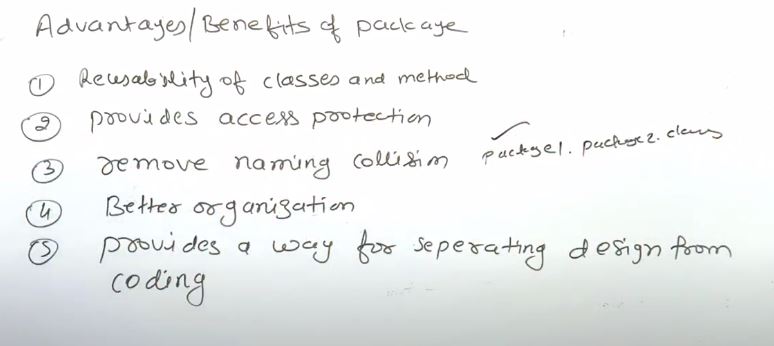 Advantages/Benefits of package
① Reusability of classes and method
② provides access protection
③ remove naming collision package1.package2.class
④ Better organization
⑤ provides a way for seperating design from
coding